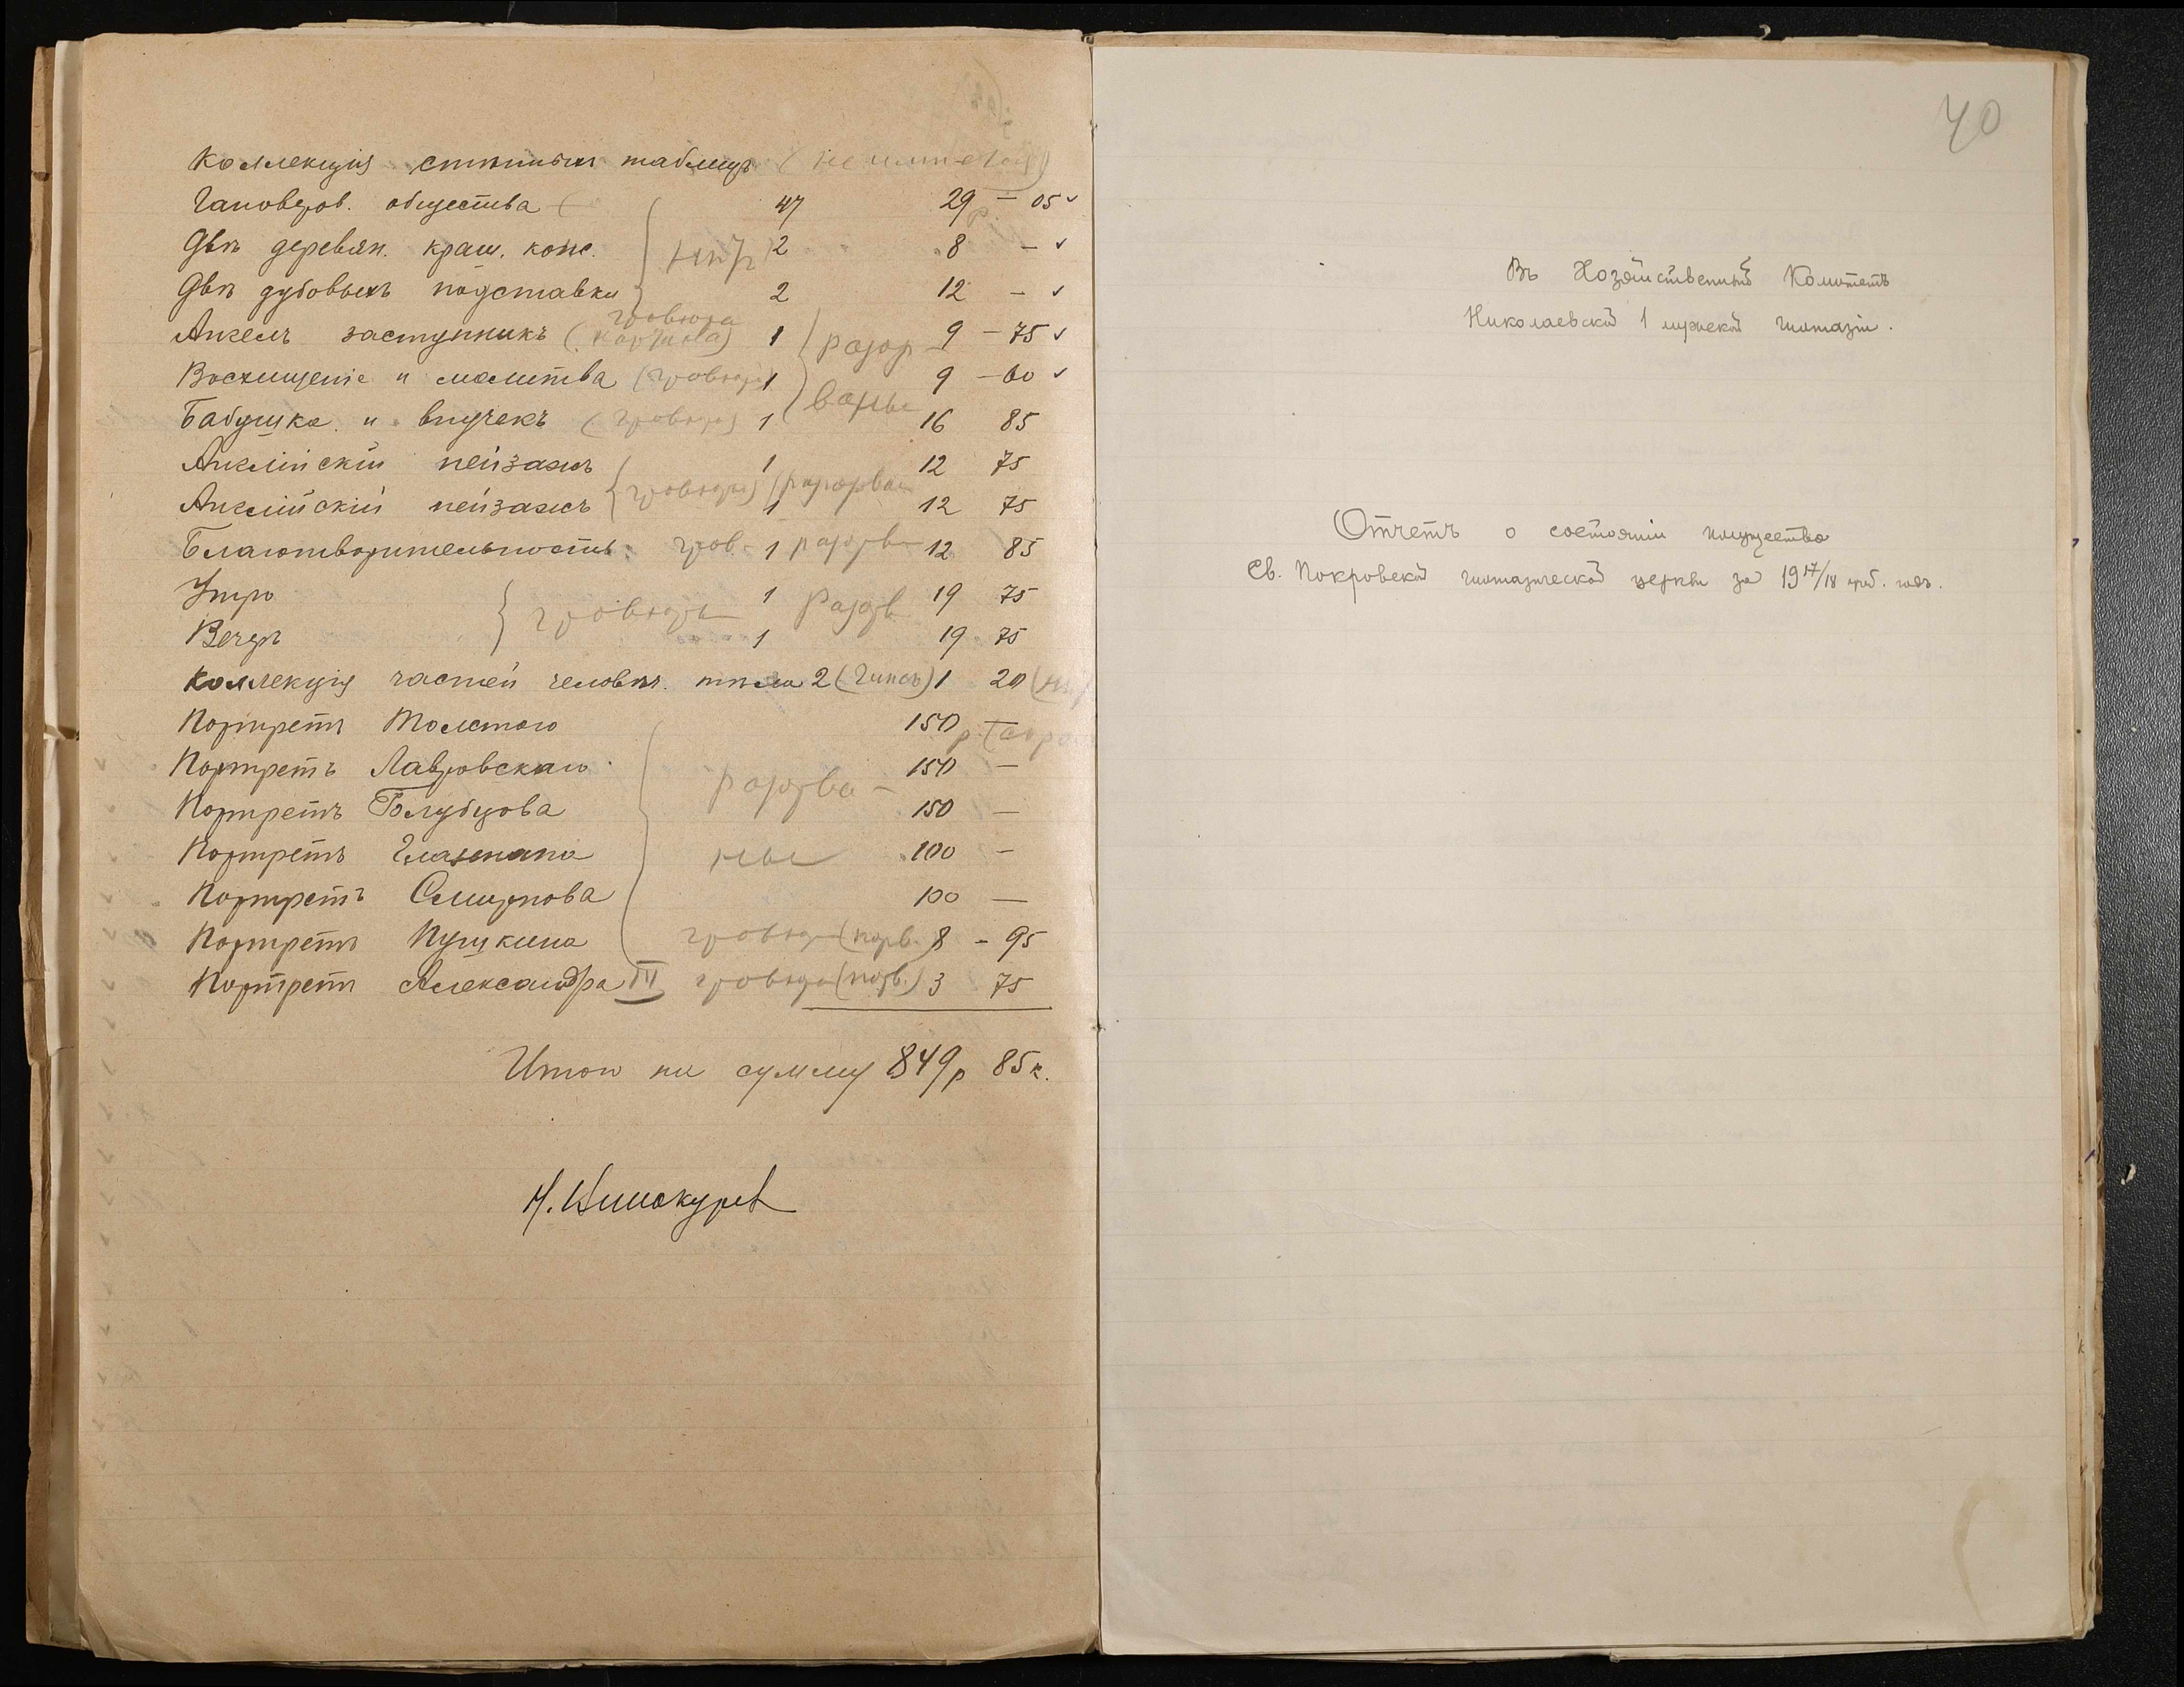 Коллекція стѣнныхъ таблицъ (не имѣется)
Гановеров. общества 47 29 р. - 05 ✓
Двѣ деревян. краш. конс. нѣтъ 2 8 - ✓
Двѣ дубовыхъ подставки 2 12 - ✓
гравюра
Ангелъ заступникъ (картина) 1 разор 9 - 75 ✓
Восхищеніе и молитва (гравюра) 1 9 - 60 ✓
Бабушка и внучекъ (гравюра) 1 ваны 16 85
Англійскій пейзажъ 1 12 75
(гравюры)
Англійскій пейзажъ 1 12 75
Благотворительность грав. 1 12 85
Утро 1 19 75
гравюры
Вечеръ 1 19 75
Коллекція частей человѣч. тѣла 2 (Гипсъ) 1 20
Портретъ Толстого 150 -
Портретъ Лавровскаго 150 -
разрва-
Портретъ Голубцова 150 -
Портретъ ны 100 -
Портретъ Смирнова 100 -
Портретъ Пушкина гравюра 8 - 95
Портретъ Александра III гравюра 3 75
Итого на сумму 849 р 85 к.
Н. Винокуров
40
Въ Хозяйственный Комитетъ
Николаевской 1 мужской гимназіи.
Отчетъ о состояніи имущества
Св. Покровской гимназической церкви за 1917/18 год.